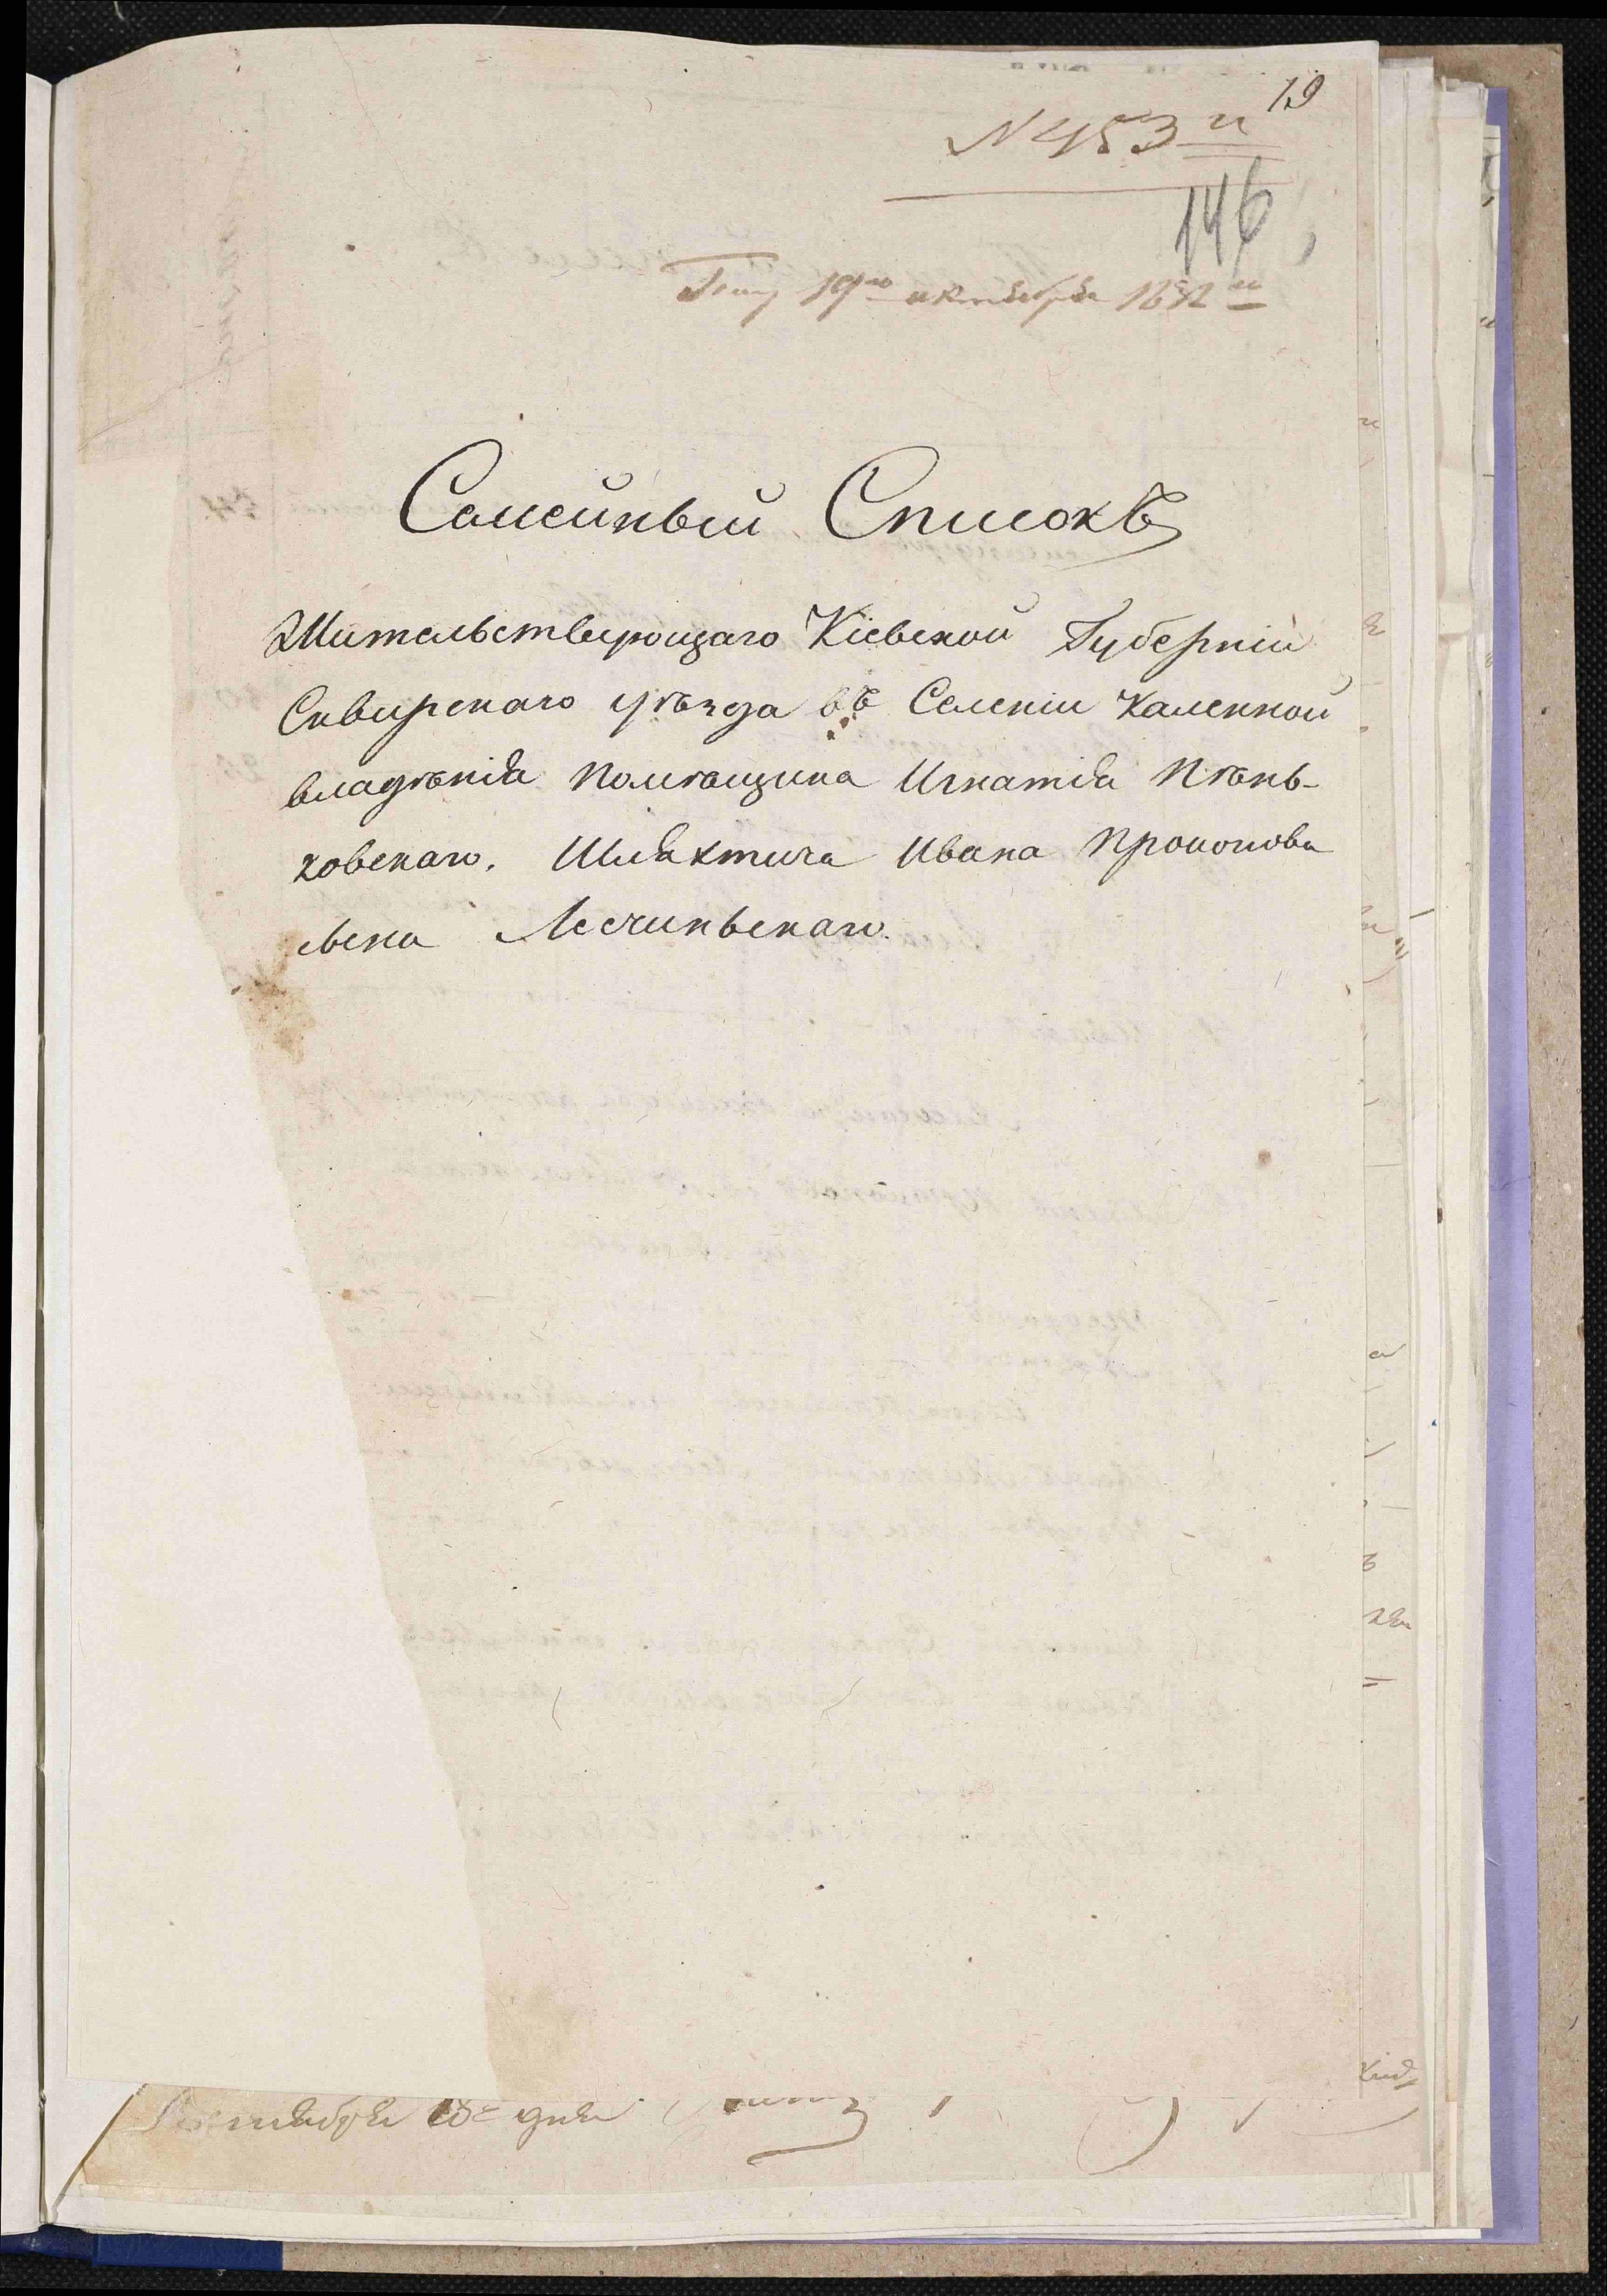 19
N 453 й
146
19го октября 1832 го
Семейный Списокъ
Жительствующаго Кіевской Губерніи
Сквирскаго уѣзда въ Селеніи Каленной
владѣнія помѣщика Игнатія Пѣнь-
ковскаго. Шляхтича Ивана Прокопова
сына Лесчинскаго.
Октября 18 дня